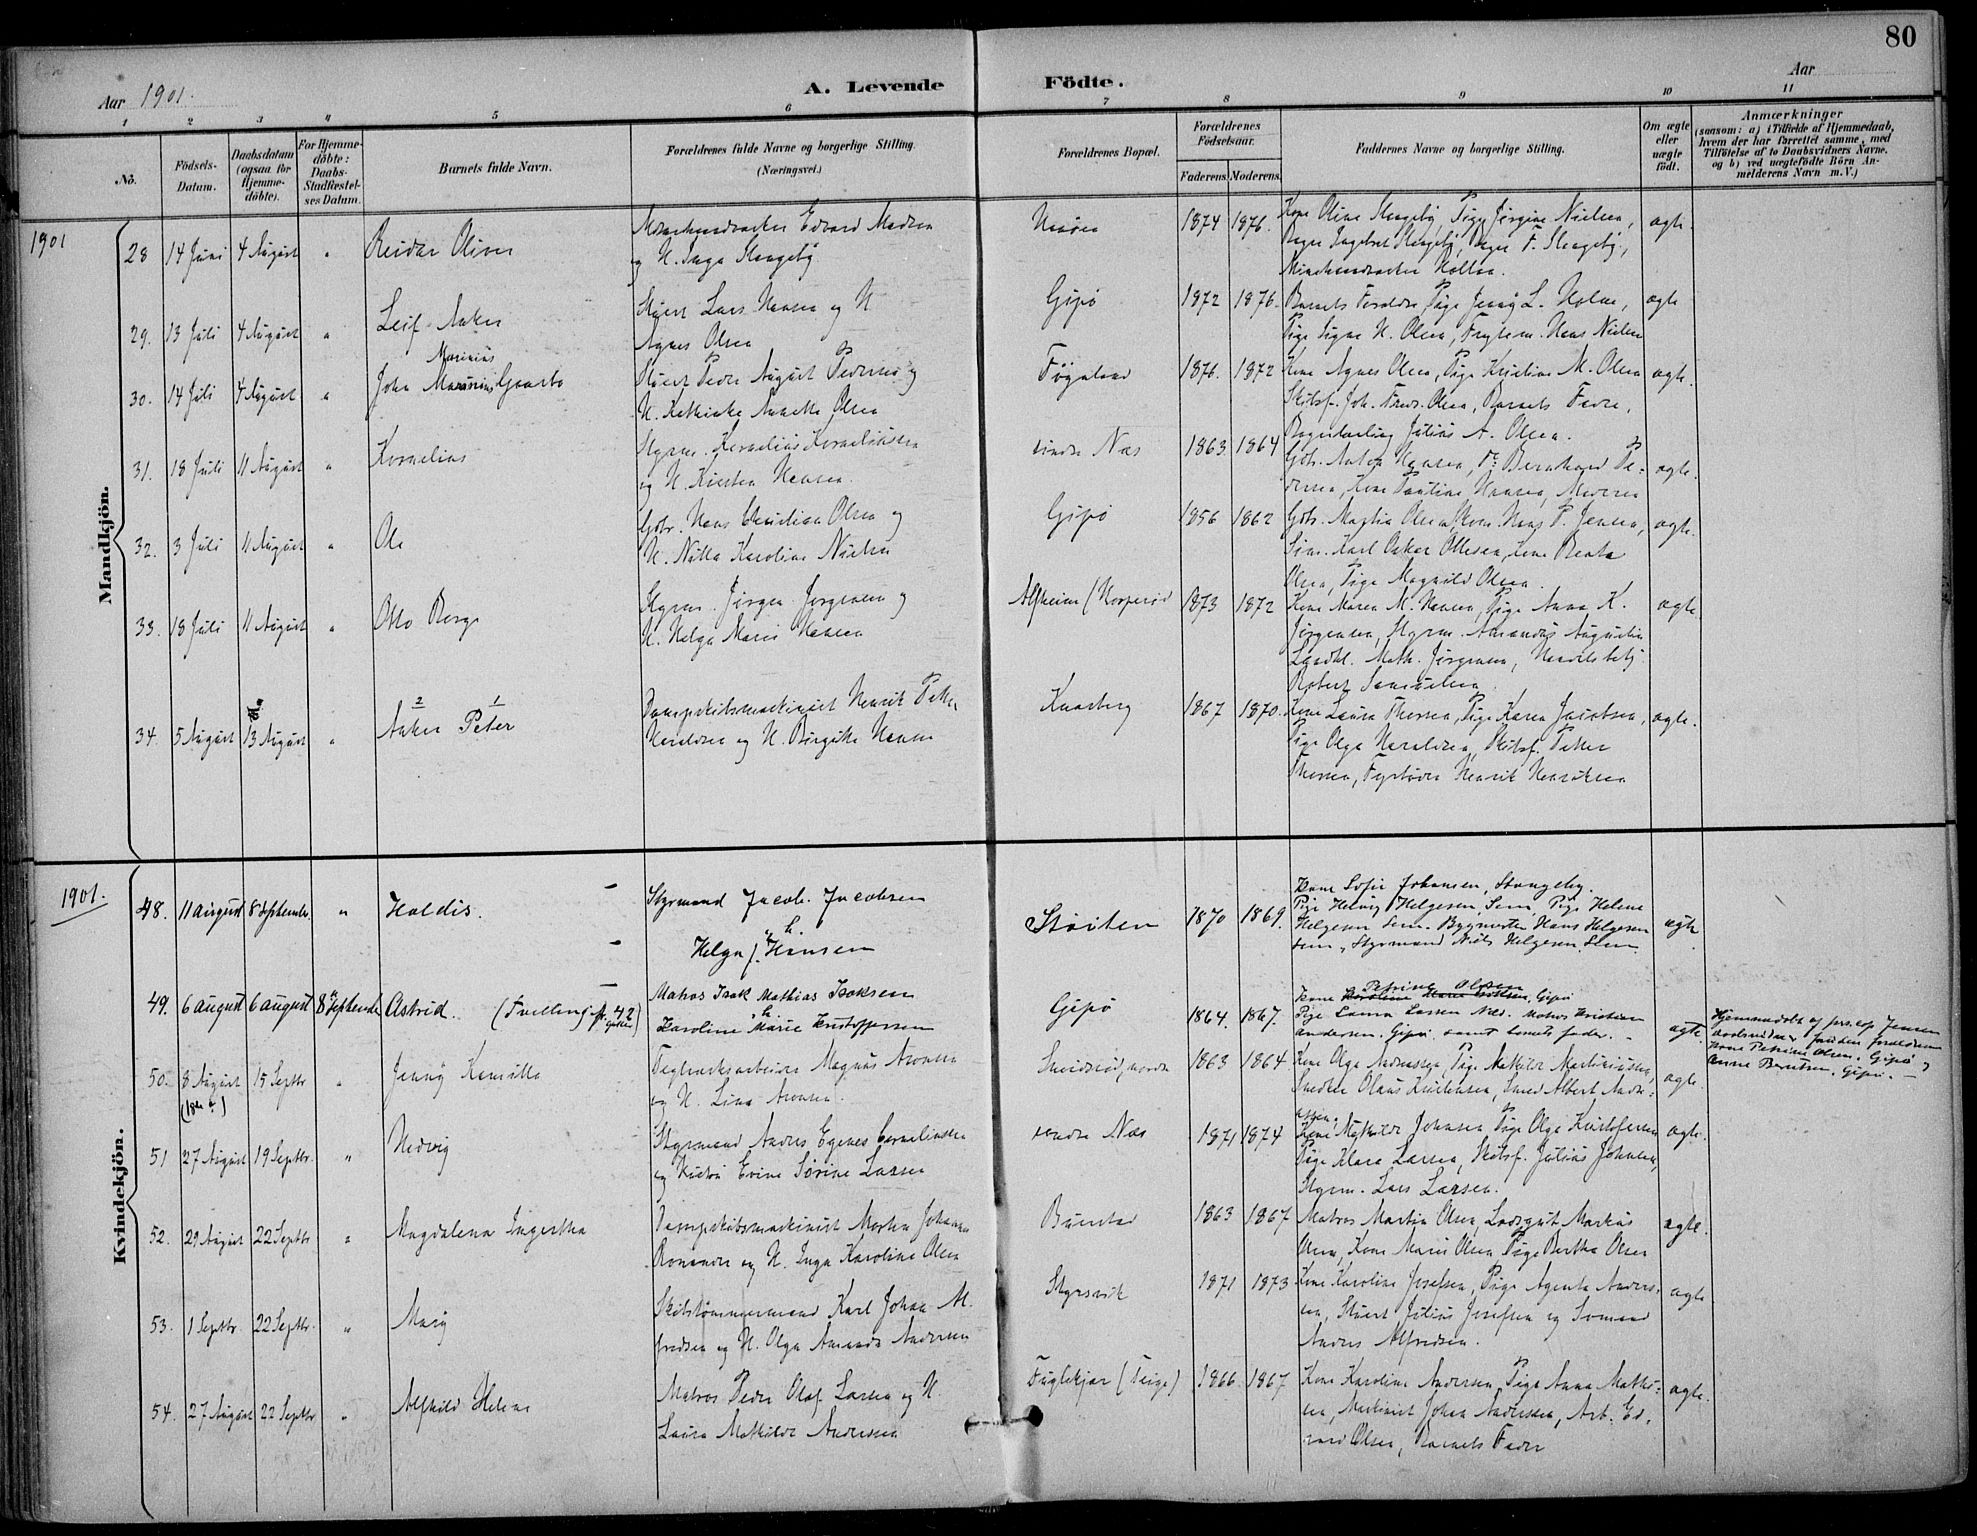 80
Aar 1901.
A. Levende Födte.
Aar
1 2 3 4 5 6 7 8 9 10 11
No.
Födsels-Datum.
Daabsdatum (ogsaa for Hjemme-döbte).
For Hjemme-döbte: Daabs-Stadfæstel-ses Datum.
Barnets fulde Navn.
Forældrenes fulde Navne og borgerlige Stilling.
(Næringsvei.)
Forældrenes Bopæl.
Forældrenes Födselsaar.
Faderens. Moderens.
Faddernes Navne og borgerlige Stilling.
Om ægte eller uægte födt.
Anmærkninger
(saasom: a) i Tilfælde af Hjemmedaab,
hvem der har forrettet samme, med
Tilföielse af to Daabsvidners Navne.
og b) ved uægtefödte Börn An-
melderens Navn m.V.)
1901
Mandkjön.
28 14 Juni 4 August " Reidar Oliver
og H. Inga Slengeby
1874 1876. ægte.
29. 13 Juli 4 August " Leif Anker
Lars Hansen og H
Agnes Olsen
Gipø 1872 1876. Barnets Forældre, Pige Jenny L. Holm,
Pige Signe H. Olsen, Hans Nielsen
ægte
30. 14 Juli 4 August "
Marinius
John
Peder August Pedersen og
H. Kathinka Annette Olsen
Føynland 1876. 1872 Kone Agnes Olsen, Pige Kristine M. Olsen
Skibsf. Joh. Fredr. Olsen, Barnets Fader,
ægte.
31. 18 Juli 11 August " Kornelius
Styrm. Kornelius Korneliussen
og H. Kirsten Hansen.
søndre Næs 1863 1864
Julius A. Olsen.
ægte.
32. 3 Juli 11 August " Ole
Gbr. Hans Christian Olsen og
H. Nilla Karoline Nielsen
Gipø 1856 1862 Gbr. Martin Olsen, Kone Hans P. Jensen,
Søm. Karl Oskar Ottesen, Kone Beate
Olsen, Pige Magnhild Olsen.
ægte.
33. 18 Juli 11 August " Otto Borge
Styrm. Jørgen Jørgensen og
H. Helga Marie Hansen
1873 1872 Kone Maren M. Hansen, Pige Anna K.
Jørgensen, Styrm. Amandus Augustin
Landhl. Math. Jørgensen,
Robert Samuelsen
ægte.
34. 5 August 13 August "
2 1
Anker Peter
Dampskibsmaskinist Henrik Petter
Haraldsen og H. Birgitte Hansen
Kaarberg 1867 1870. Kone Laura Thorsen, Pige Karen Jacobsen,
Pige Olga Haraldsen, Skibsf. Petter
Thorsen, Fyrbøder Henrik Henriksen
ægte.
1901.
Kvindekjön.
48. 11 august 8 September. " Haldis.
Styrmand Jacob Jacobsen
Helga f. Hansen
Støiten 1870 1869.
Kone Sofie Johansen, Stangeby.
Pige Helvig Helgesen, Sem, Pige Helene
Helgesen Sem. Bygmester Hans Helgesen
Sem, Styrmand Niels Helgesen, Sem
ægte
49. 6 august 6 august 8 September Astrid. (Tvilling, fr. 42 gutter)
Matros Isak Mathias Isaksen
Karoline Marie Kristoffersen
Gipø 1864. 1867.
Petrine Olsen
Kone Gipø
Pige Laura Larsen Næs. Matros Kristian
Andersen. Gipø. samt barnets fader.
ægte
Petrine Olsen. Gipø
Anne Berntsen, Gipø.
50. 8 August 15 Septbr " Jenny Kamilla
(18de?)
Teglværksarbeider Magnus Aronsen
og H. Lina Aronsen.
1863 1864 Kone Olga Andreassen, Pige Mathilde Martiniussen,
Snedker Olaus Kristensen, Smed Albert Andre-
assen.
ægte.
51 27 August 19 Septbr. " Hedvig
Styrmand Anders Egenes Cornelissen
og Hustru Evine Sørine Larsen
søndre Næs 1871 1874 Kone Mathilde Johnsen Pige Olga Kristofersen
Pige Klara Larsen, Skibsf. Julius Johnsen,
Styrm. Lars Larsen.
ægte.
52. 29 August 22 Septbr " Magdalena Ingertha
Dampskibsmaskinist Morten Johansen
og H. Inga Karoline Olsen
Buerstad 1863 1867 Matros Martin Olsen, Lodsgut Markus
Olsen, Kone Marie Olsen Pige Bertha Olsen
ægte.
53. 1 Septbr. 22 Septbr. " Mary
Skibstømmermand Karl Johan Al-
fredsen og H. Olga Amanda Andersen
Styrsvik 1871 1873 Kone Karoline Josefsen, Pige Agenta Anders-
en, Stuert Julius Josefsen og Sømand
Anders Alfredsen.
ægte
54. 27 August 22 Septbr " Alfhild Helene
Matros Peder Olaf Larsen og H.
Laura Mathilde Andersen
Fuglekjær (Teige) 1866 1867 Kone Karoline Andersen, Pige Anna Mathi-
sen, Maskinist Johan Andersen, Arb. Ed-
vard Olsen, Barnets Fader
ægte.